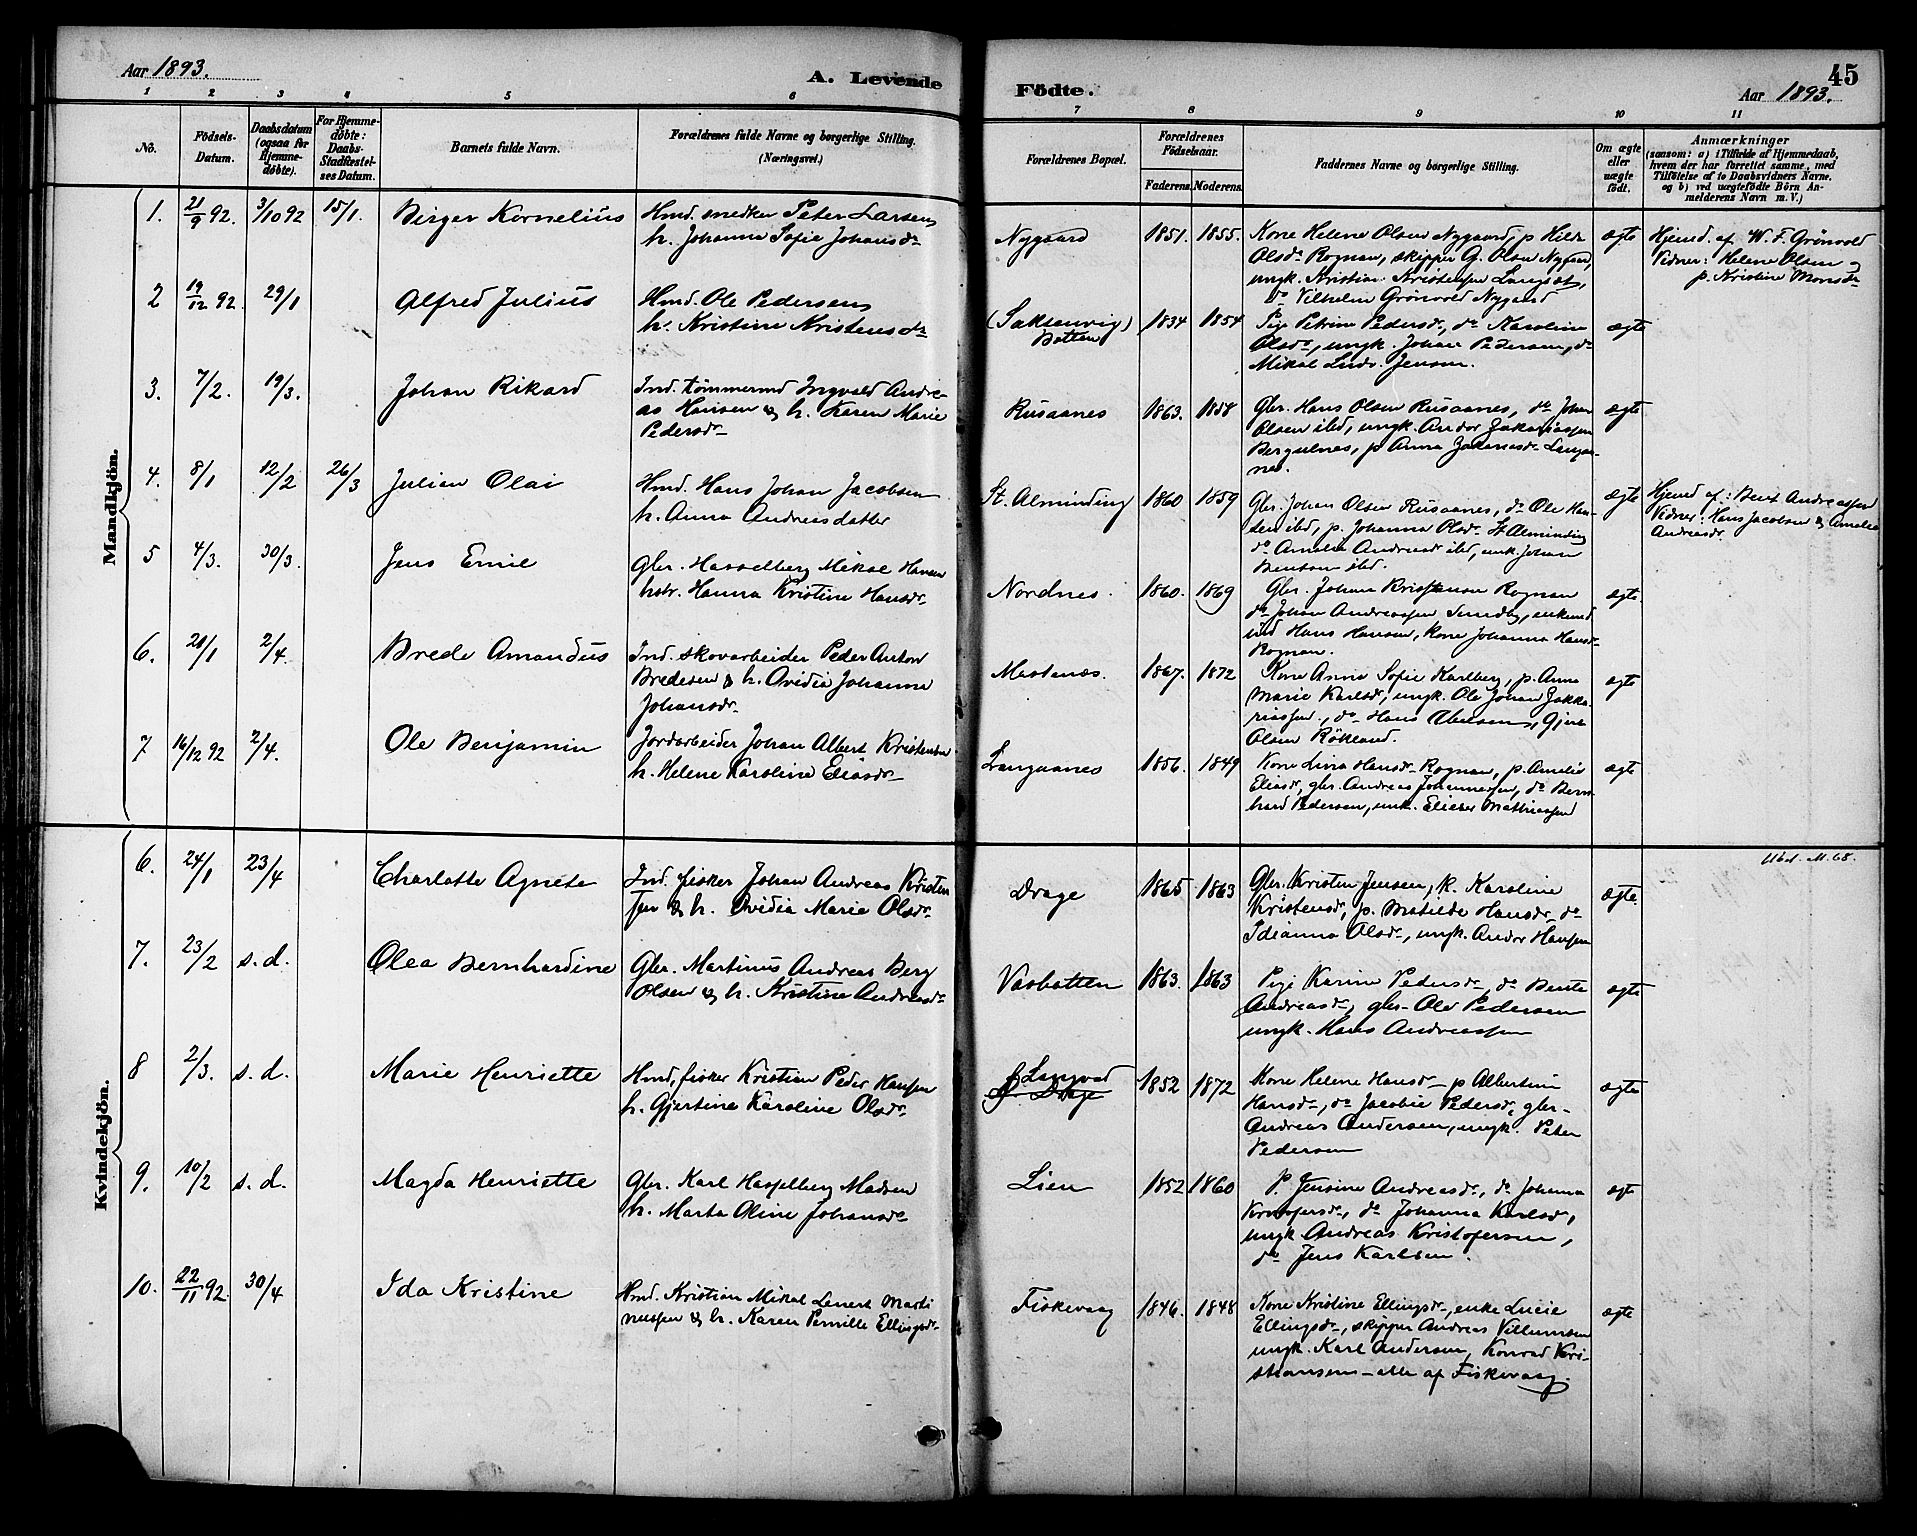 Aar 1893.
A. Levende Födte.
45
Aar 1893.
1 2 3 4 5 6 7 8 9 10 11
No.
Födsels-
Datum.
Daabsdatum
(ogsaa for
Hjemme-
döbte).
For Hjemme-
döbte:
Daabs-
Stadfæstel-
ses Datum.
Barnets fulde Navn.
Forældrenes fulde Navne og borgerlige Stilling.
(Næringsvei.)
Forældrenes Bopæl.
Forældrenes
Födselsaar.
Faderens. Moderens.
Faddernes Navne og borgerlige Stilling.
Om ægte
eller
uægte
födt.
Anmærkninger
(saasom: a) i Tilfælde af Hjemmedaab,
hvem der har forrettet samme, med
Tilföielse af to Daabsvidners Navne,
og b) ved uægtefödte Börn An-
melderens Navn m. V.)
Mandkjön.
1. 21/9 92. 3/10 92 15/1. Birger Kornelius
Hmd. snedker Peter Larsen,
h. Johanna Sofie Johansdr
Nygaard 1851. 1855.
Kone Helene Olsen Nygaard, p Hilda
Olsdr Rognan, skipper G. Olsen Nygaard,
ungk. Kristian Kristensen
do Vilhelm Grönvold Nygaard
ægte
Hjemd. af W. F. Grönvold
Vidner: Helene Olsen og
p. Kristine Monsdr
2 19/12 92. 29/1 Alfred Julius
Hmd. Ole Pedersen,
h. Kristine Kristensdr
(Saksenvig)
Botten
1834 1854
Pige Petrine Pedersdr, do Karoline
Olsdr, ungk. Johan Pedersen, do
Mikal Ludv. Jensen.
ægte
3. 7/2. 19/3. Johan Rikard
Ind. tömmermd Ingvald Andre-
as Hansen & h. Karen Marie
Pedersdr
Rusaanes 1863. 1858
Gbr. Hans Olsen Rusaanes, do Johan
Olsen ibd, ungk. Andor Zakariassen
Bergulnes, p Anna Zakariasdr Langaa-
nes.
ægte
4. 8/1 12/2 26/3 Julian Olai
Hmd. Hans Johan Jacobsen
h. Anna Andreasdatter
St. Alminding 1860 1859
Gbr. Johan Olsen Rusaanes, do Ole Han-
sen ibd, p. Johanna Olsdr St Alminding
do Amalie Andreasdr ibd, unk. Johan
Bentsen ibd.
ægte
Hjemd af: Bent Andreassen
Vidner: Hans Jacobsen & Amalie
Andreasdr.
5 4/3. 30/3. Jens Emil
Gbr. Hasselberg Mikal Hansen
hstr. Hanna Kristine Hansdr
Nordnes. 1860. 1869
Gbr. Johan Kristensen Rognan
do Johan Andreassen Sundby, enkemd
ind Hans Hansen, kone Johanna Hansdr
Rognan.
ægte.
6. 20/1 2/4. Brede Amandus
Ind. skovarbeider Peder Anton
Bredesen & h. Ovidia Johanna
Johansdr
Mastenæs. 1867. 1872
Kone Anna Sofie Karlberg, p. Anna
Marie Karlsdr, ungk. Ole Johan Zakka-
riassen, do Hans Ibersen, Gjert
Olsen Rökland.
ægte
7 16/12 92 2/4. Ole Benjamin
Jordarbeider Johan Albert Kristensen
h. Helene Karoline Eliasdr
Langaanes 1856. 1849
Kone Lina Hansdr Rognan, p. Amalie
Eliasdr, gbr. Andreas Johannessen, do Bern-
hard Pedersen, unk. Elieser Mathiassen
ægte
Kvindekjön.
6. 24/1 23/4 Charlotte Agnete
Ind. fisker Johan Andreas Kristen
sen & h. Ovidia Marie Olsdr
Drage 1865 1863
Gbr. Kristen Jensen, k. Karoline
Kristensdr, p. Matilde Hansdr do
Idianna Olsdr, ungk. Andor Hansen
ægte.
Utd. M. 68.
7. 23/2 s. d. Olea Bernhardine
Gbr. Martinus Andreas Berg
Olsen & h. Kristine Andreasdr
Vasbotten 1863. 1863
Pige Karine Pedersdr, do Berite
Andreasdr, gbr. Ole Pedersen
ungk. Hans Andreassen
ægte
8 2/3. s. d. Marie Henriette
Hmd, fisker Kristian Peder Hansen
h. Gjertine Karoline Olsdr
Langvad
Drage
1852 1872
Kone Helene Hansdr p Albertine
Hansdr, do Jacobie Pedersdr, gbr.
Andreas Andersen, ungk. Peter
Pedersen
ægte
9. 10/2 s. d. Magda Henriette
Gbr. Karl Hasselberg Madsen
h. Marta Oline Johansdr
Lien 1852 1860
P. Jensine Andreasdr, do Johanna
Kristofersdr, do Johanna Karlsdr,
ungk Andreas Kristofersen,
do Jens Karlsen.
ægte
10. 22/11 92. 30/4 Ida Kristine
Hmd. Kristian Mikal Lenert Marti
nussen & h. Karen Pernille Ellingsdr
Fiskevaag 1846. 1848
Kone Kristine Ellingsdr, enke Lucie
Ellingsdr, skipper Andreas Villumsen
ungk. Karl Andersen, Konrad Kri-
stiansen – alle af Fiskevaag.
ægte